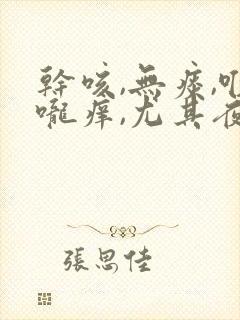 幹咳,無痰,
嚨痒,尤其夜
張思佳